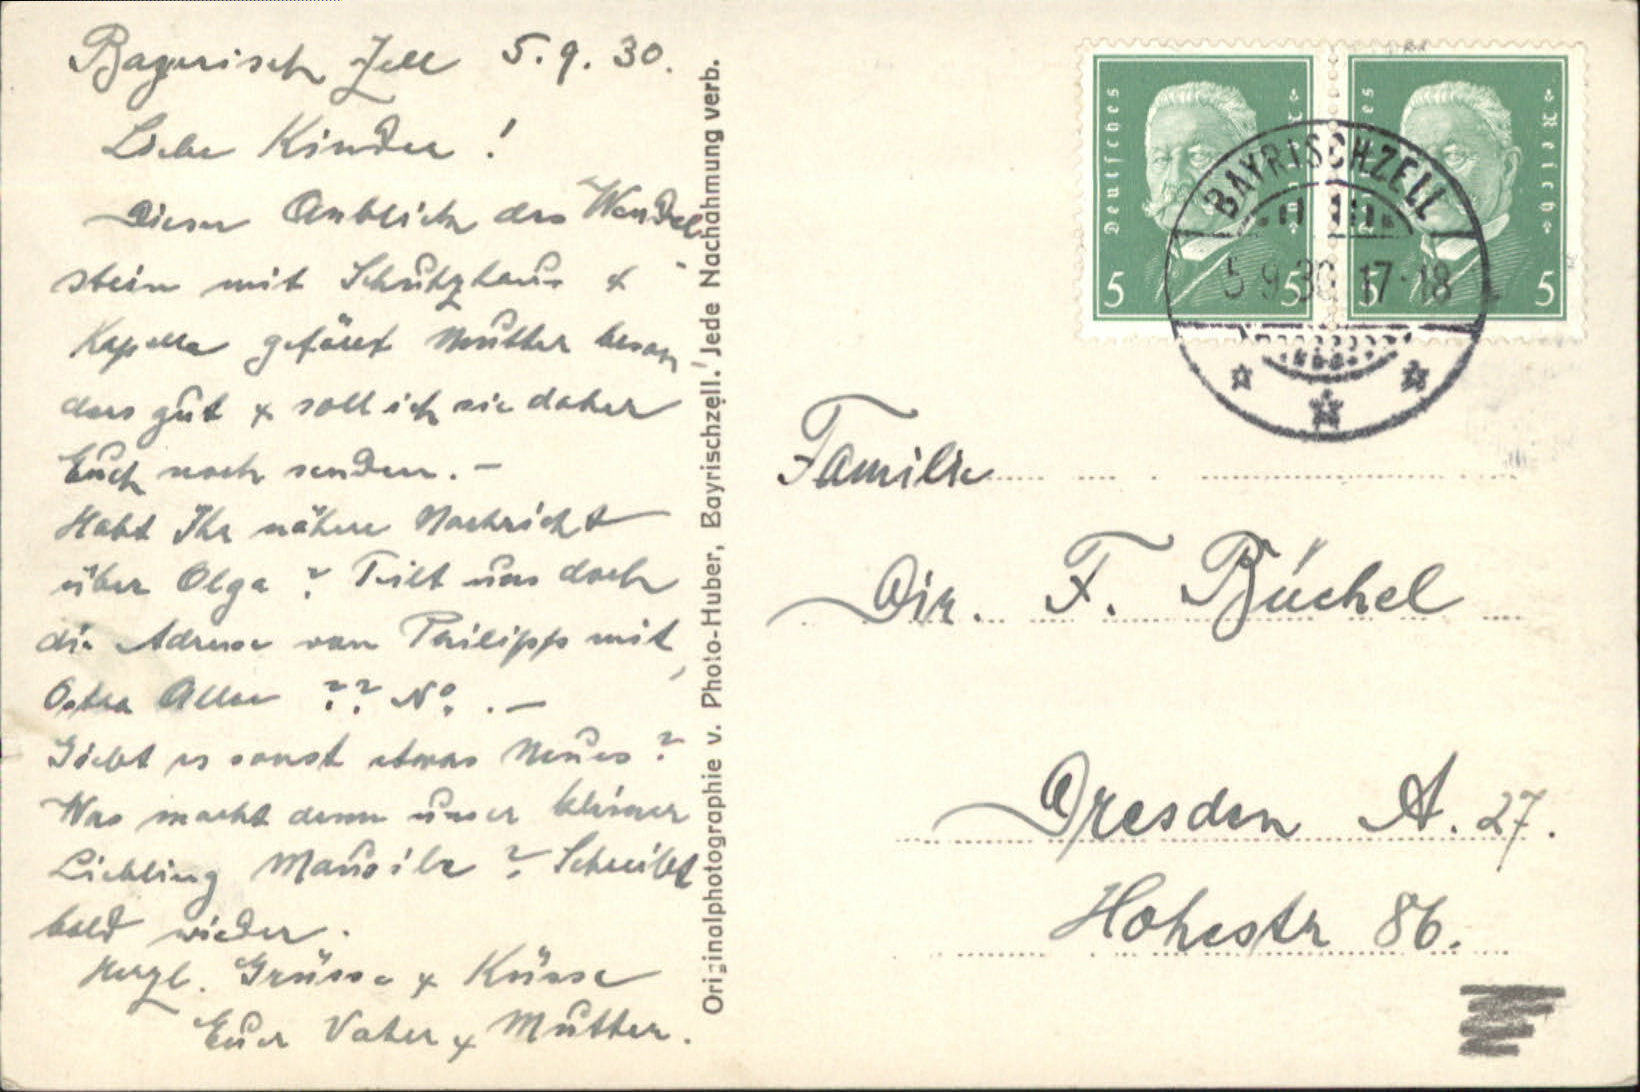 Bayrisch Zell 5.9.30.
Liebe Kinder !
Dieser Anblick des Wendel-
stein mit Schutzhaus &
Kapelle gefällt Mutter beson
ders gut & soll ich sie daher
Euch noch senden. –
Habt Ihr nähere Nachricht
über Olga ? Teilt uns doch
die Adresse von Philipp mit,
Ostra Allee ?? No. . –
Giebt es sonst etwas Neues ?
Was macht denn unser kleiner
Liebling Mausile ? Schreibt
bald wieder.
Herzl. Grüsse & Küsse
Euer Vater & Mutter.
Originalphotographie v. Photo-Huber, Bayrischzell. Jede Nachahmung verb.
Deutsches Reich
5 5
Deutsches Reich
5 5
BAYRISCHZELL
5 9 30 17-18
Familie
Dir. F. Büchel
Dresden A. 27.
Hohestr 86.